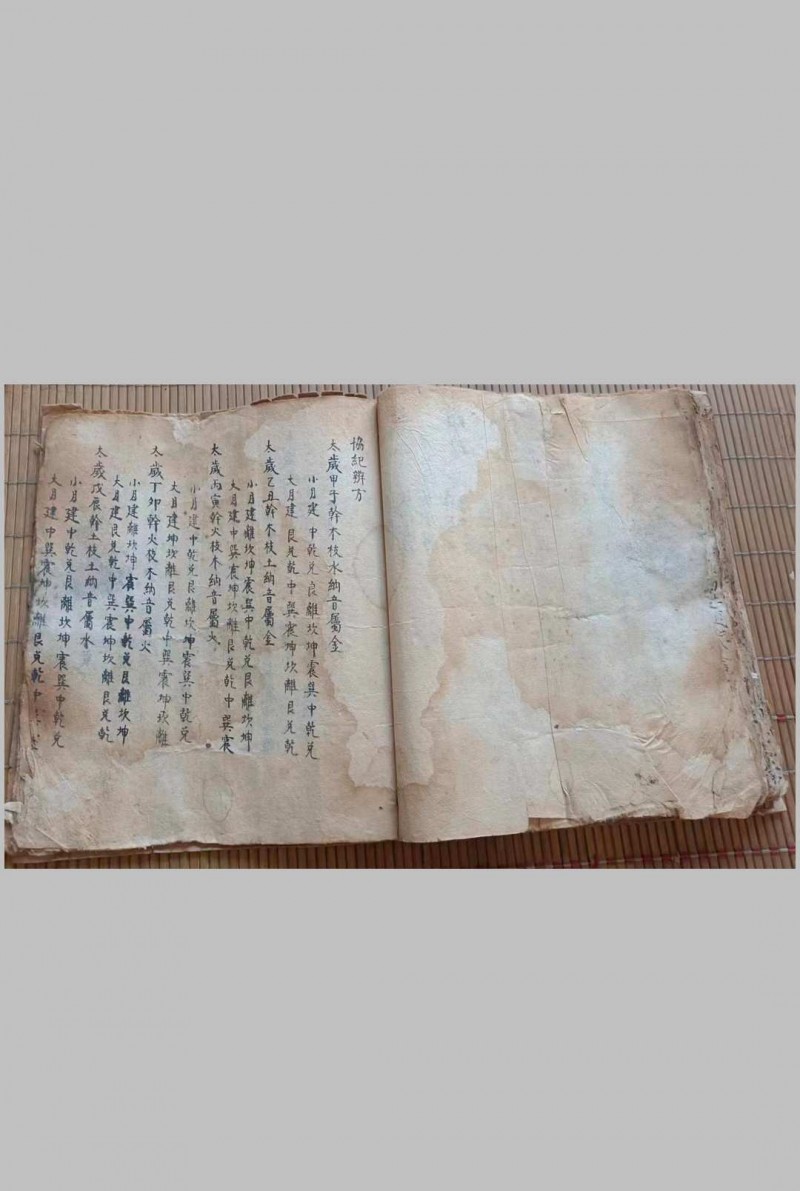 協紀辨方
太歲甲子幹木枝水納音屬金
小月建中乾兌艮離坎坤震巽中乾兌
大月建艮兌乾中巽震坤坎離艮兌乾
太歲乙丑幹木枝土納音屬金
小月建離坎坤震巽中乾兌艮離坎坤
大月建中巽震坤坎離艮兌乾中巽震
太歲丙寅幹火枝木納音屬火
小月建中乾兌艮離坎坤震巽中乾兌
大月建坤坎離艮兌乾中巽震坤坎離
太歲丁卯幹火枝木納音屬火
小月建離坎坤震巽中乾兌艮離坎坤
大月建艮兌乾中巽震坤坎離艮兌乾
太歲戊辰幹土枝土納音屬水
小月建中乾兌艮離坎坤震巽中乾兌
大月建中巽震坤坎離艮兌乾中